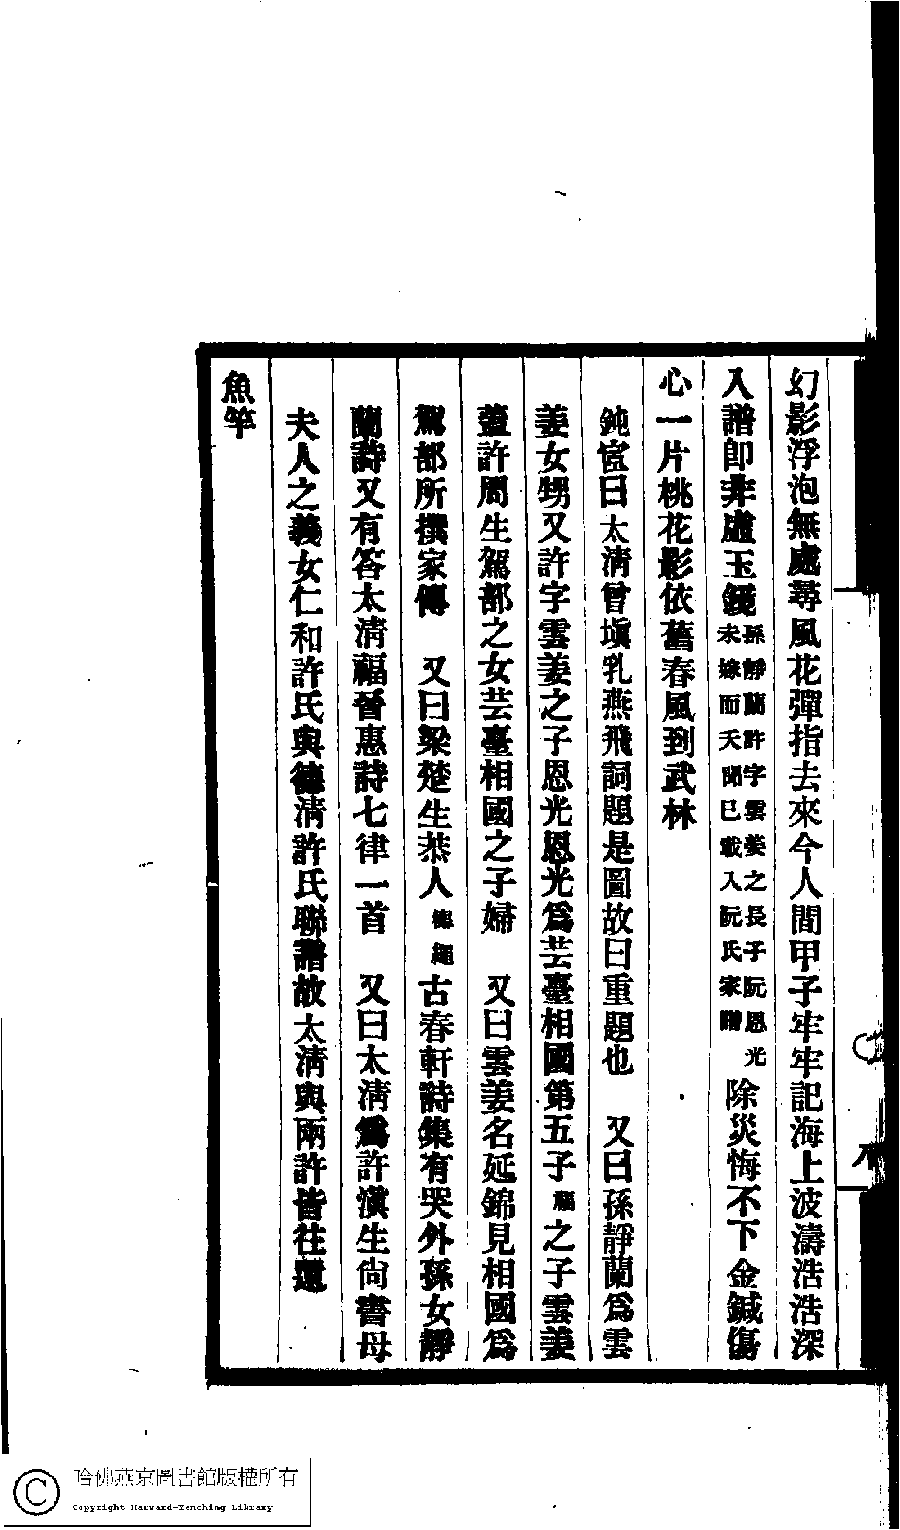 幻影浮泡無處尋風花彈指去來今人間甲子牢牢記海上波濤浩浩深
入譜卽非虛玉鏡孫靜蘭許字雲姜之長子阮恩光未嫁而夭聞已載入阮氏家譜除災悔不下金鍼傷
心一片桃花影依舊春風到武林
鈍宧曰太淸曾塡乳燕飛詞題是圖故曰重題也　又曰孫靜蘭爲雲
姜女甥又許字雲姜之子恩光恩光爲芸臺相國第五子之子雲姜
蓋許周生駕部之女芸臺相國之子婦　又曰雲姜名延錦見相國爲
駕部所撰家傳　又曰梁楚生恭人德繩古春軒詩集有哭外孫女靜
蘭詩又有答太淸福晉惠詩七律一首　又曰太淸爲許滇生尙書母
夫人之義女仁和許氏與德淸許氏聯譜故太淸與兩許皆往還
魚竿
哈佛燕京圖書館版權所有
Copyright Harvard-Yenching Library